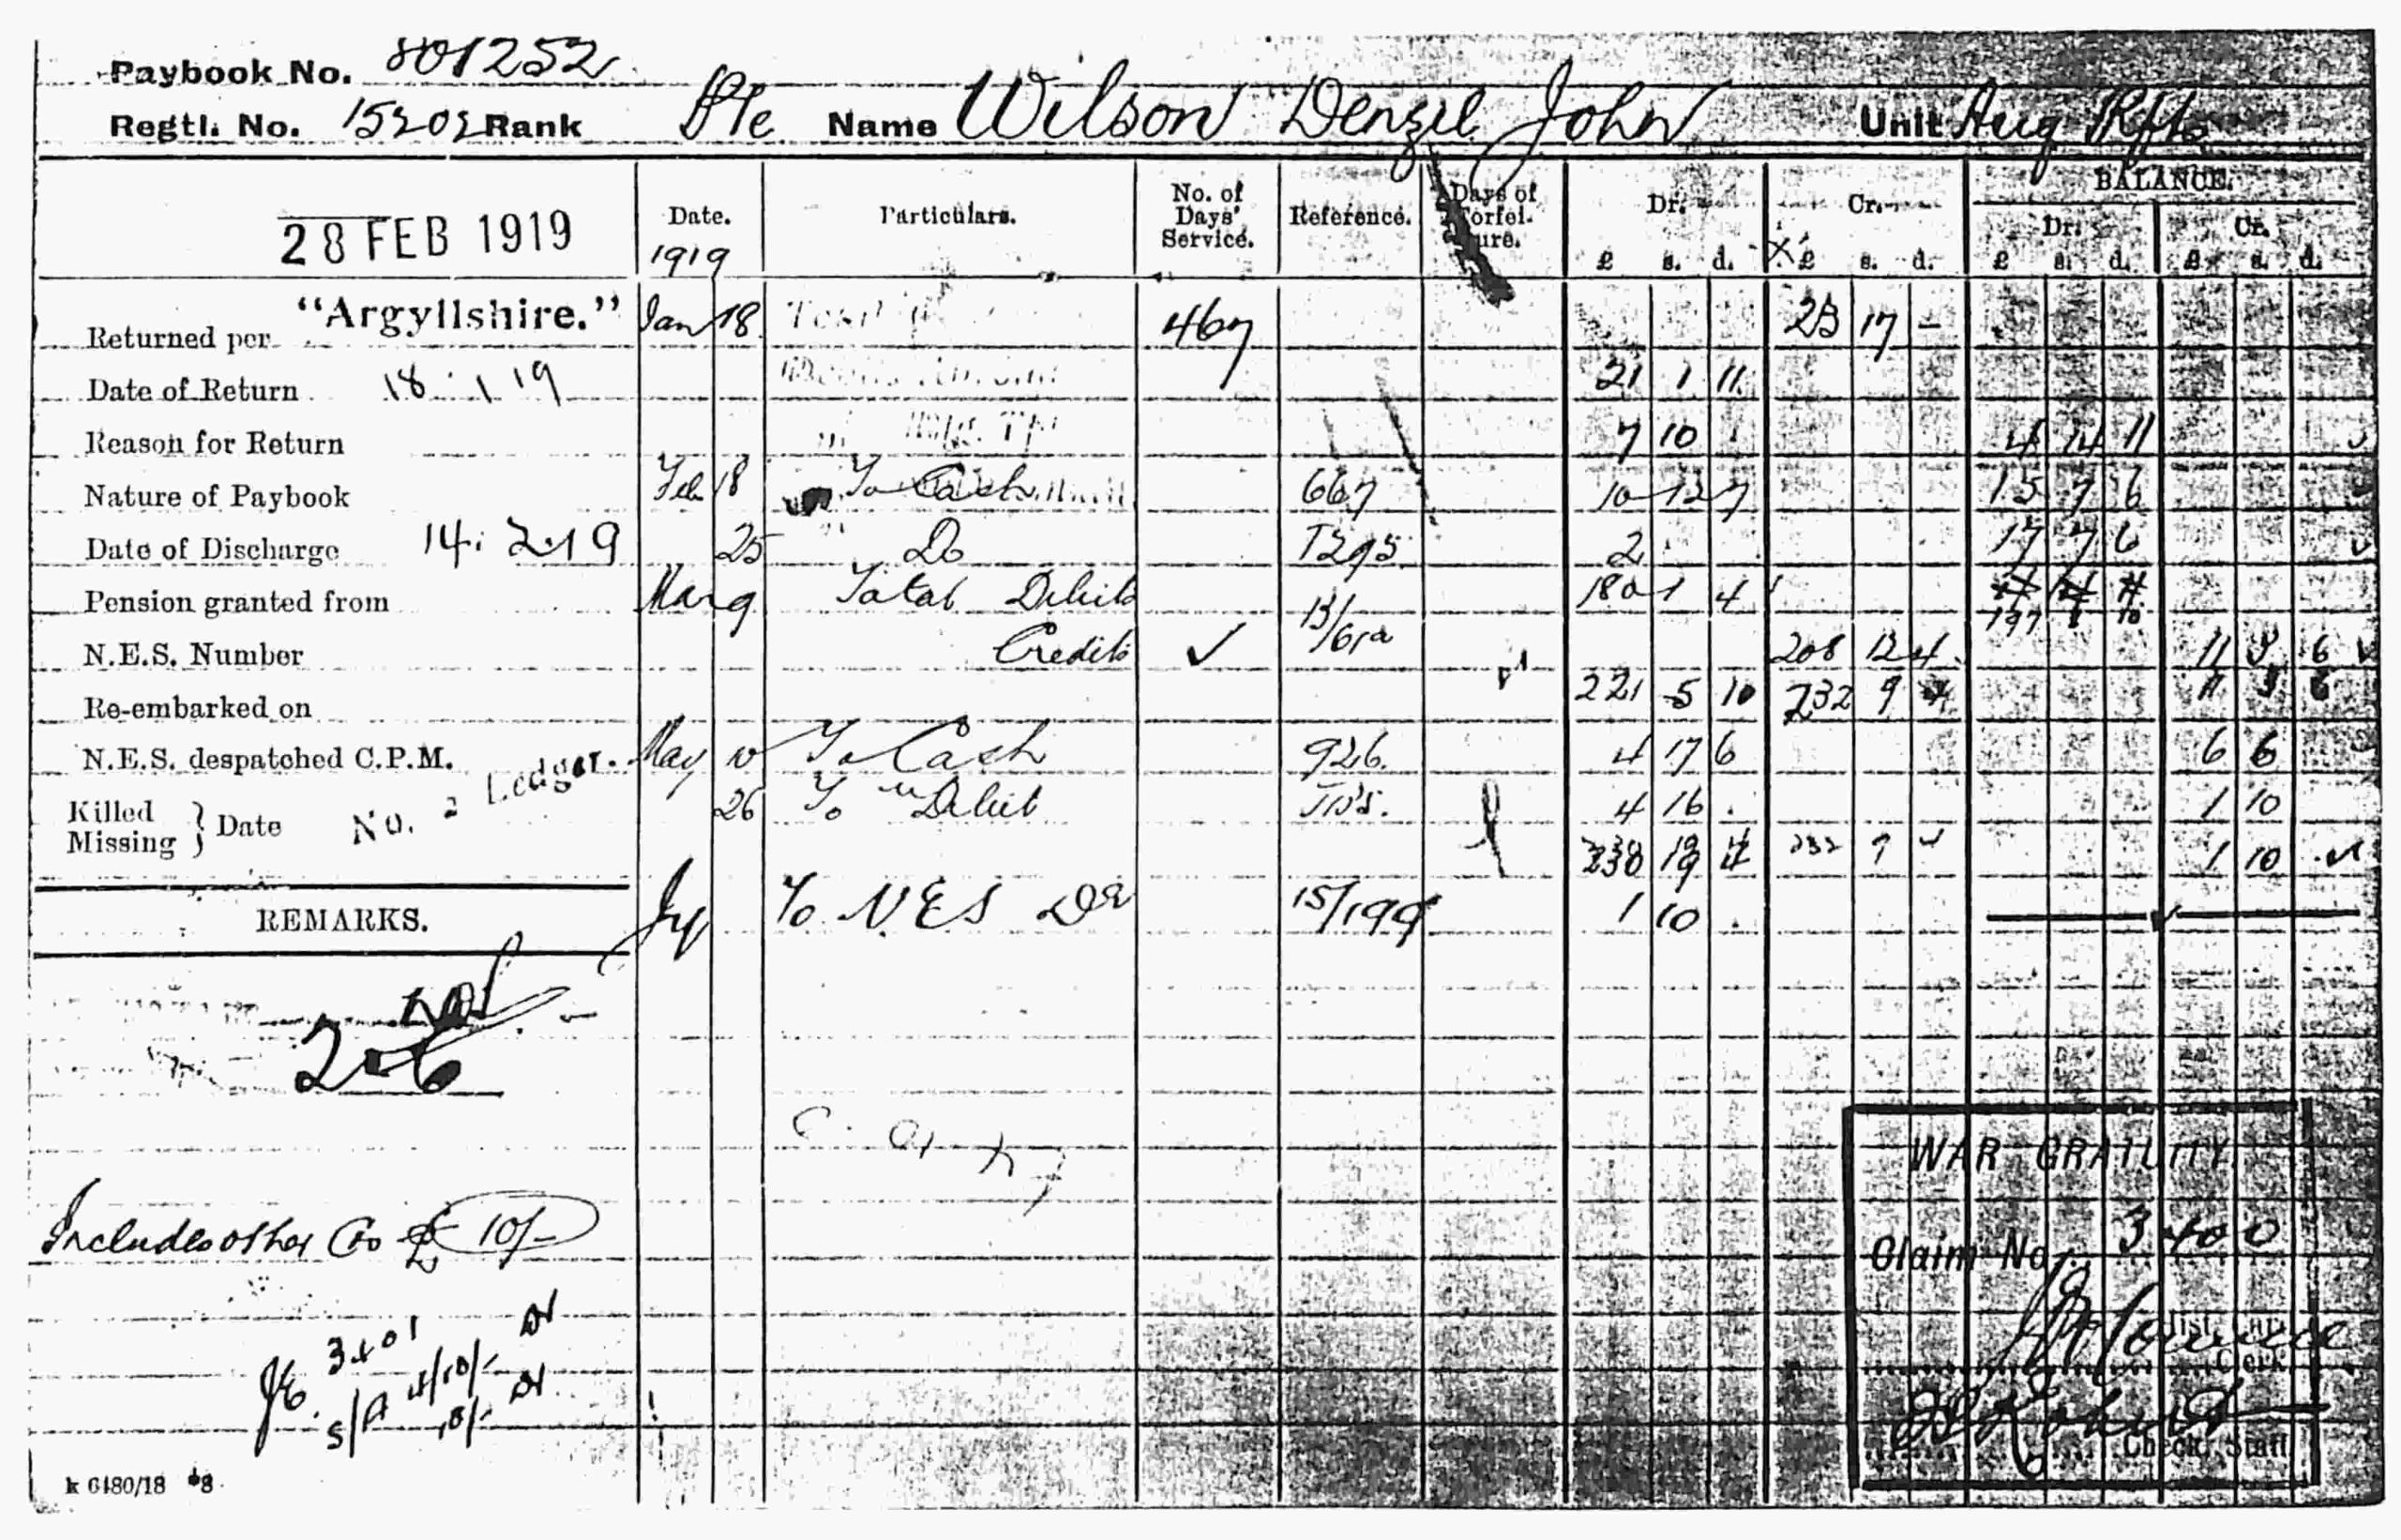 Paybook No. 801252
Regtl. No. 15202 Rank Pte Name Wilson Denzil John Unit Aug Rfts
28 FEB 1919
Date. Particulars. No. of Days' Service. Reference. Days of Forfeiture. Dr. Cr. BALANCE.
Dr. Cr.
1919 £ s. d. £ s. d. £ s. d. £ s. d.
Returned per "Argyllshire." Jan 18 467 23 17 -
Date of Return 18.1.19 21 1 11
Reason for Return 7 10 . 4 14 11
Nature of Paybook Feb 18 To Cash 667 10 12 7 15 7 6
Date of Discharge 14.2.19 25 Do 1295 2 . . 17 7 6
Pension granted from Mar 9 Total Debits 13/61a 180 1 4 197 8 10
N.E.S. Number Credits 208 12 4 11 3 6
Re-embarked on 221 5 10 232 9 4 11 3 6
N.E.S. despatched C.P.M. May 10 To Cash 926 4 17 6 6 6
No. 2 Ledger.
Killed Missing } Date 26 To Debit 4 16 . 1 10
230 19 4 232 9 4 1 10
REMARKS. To N E S Dr 15/199 1 10 .
206
Includes other Crs £ 10/-
3401
S/A 4/10/- Dr
WAR GRATUITY
Claim No. 3400
Dist. Clerk
Check. Staff
k 6480/18